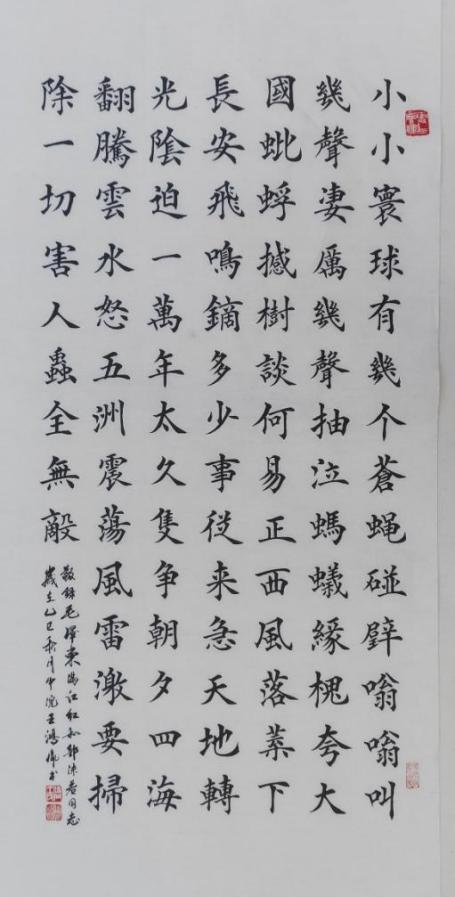 小小寰球有幾个蒼蝇碰壁嗡嗡叫
幾聲凄厲幾聲抽泣螞蟻緣槐夸大
國蚍蜉撼樹談何易正西風落葉下
長安飛鳴鏑多少事従来急天地轉
光陰迫一萬年太久隻争朝夕四海
翻騰雲水怒五洲震蕩風雷激要掃
除一切害人蟲全無敵
敬錄毛澤東滿江紅和郭沫若同志
歲在乙巳秋月中浣王鴻书